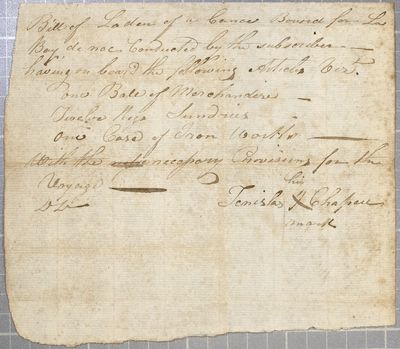 Bill of Laden of a Canoe Bound for La
Bay de noc Conducted by the subscriber
having on board the following Articles Vizt.
one Bale of Merchandere
Twelve Sundries
one Case of Iron Works
With the necessary Provisions for the
Voyage
his
Tenisla X Chapeu
mark